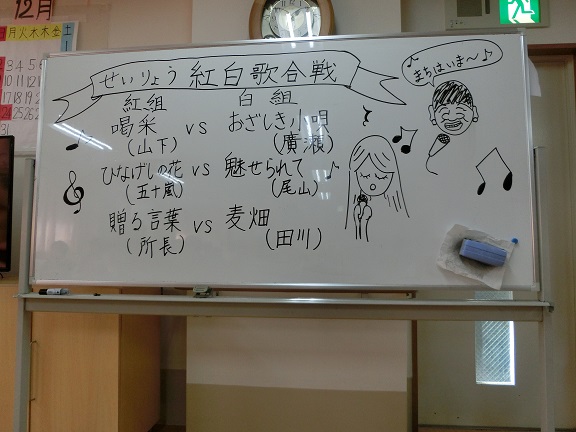 12月
月火水木金土
せいりょう 紅白歌合戦
紅組 白組
喝采 vs おざしき小唄
(山下) (廣瀬)
ひなげしの花 vs 魅せられて
(五十嵐) (尾山)
贈る言葉 vs 麦畑
(所長) (田川)
まちはいま〜